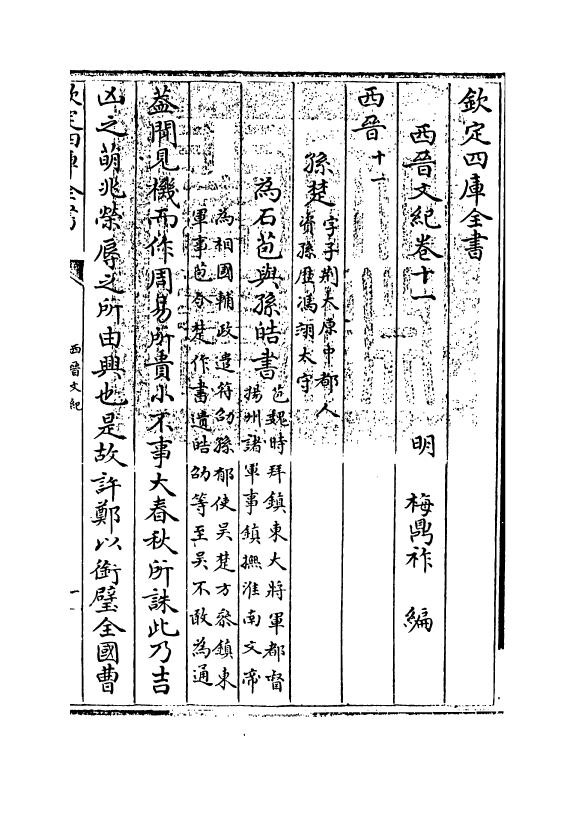 欽定四庫全書
西晉文紀卷十一
明 梅鼎祚 編
西晉十一
孫楚字子荆太原中都人
資孫歴馮翊太守
為石苞與孫皓書苞魏時拜鎮東大將軍都督
揚州諸軍事鎮撫淮南文帝
為相國輔政遣符劭孫郁使吳楚方叅鎮東
軍事苞令楚作書遺皓劭等至吳不敢為通
葢聞見機而作周易所貴小不事大春秋所誅此乃吉
凶之萌兆榮辱之所由興也是故許鄭以銜璧全國曹
欽定四庫全書
西晉文紀
一